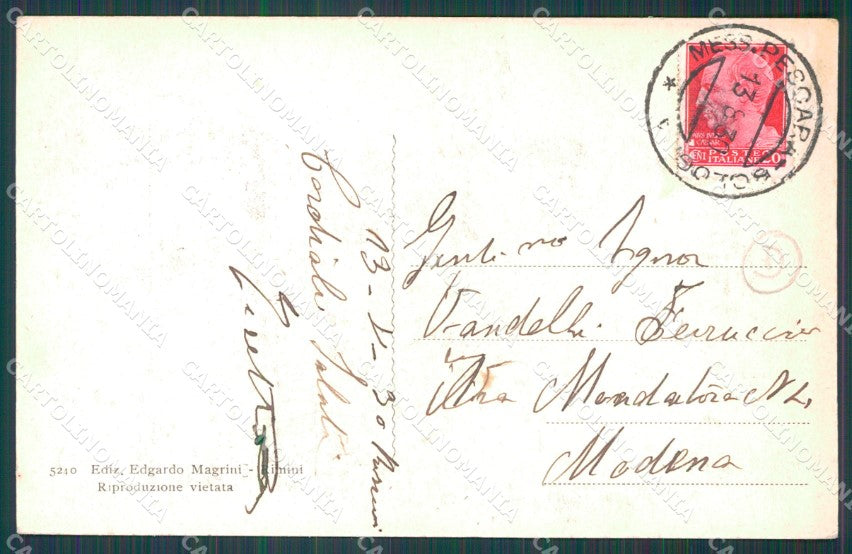 13-
30 Rimini
Cordiali Saluti
Gent.mo Signor
Vandelli Ferruccio
Via Mondatora N 2,
Modena
5210 Ediz. Edgardo Magrini - Rimini
Riproduzione vietata
MESS. PESCARA
BOLOG
13
POSTE
ITALIANE
CARTOLINOMANIA